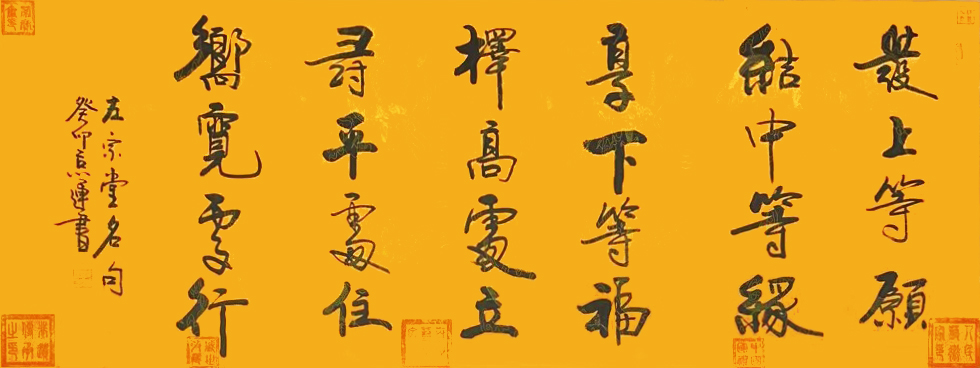 發上等願
結中等緣
享下等福
擇高處立
尋平處住
嚮寬處行
左宗堂名句
癸卯
書